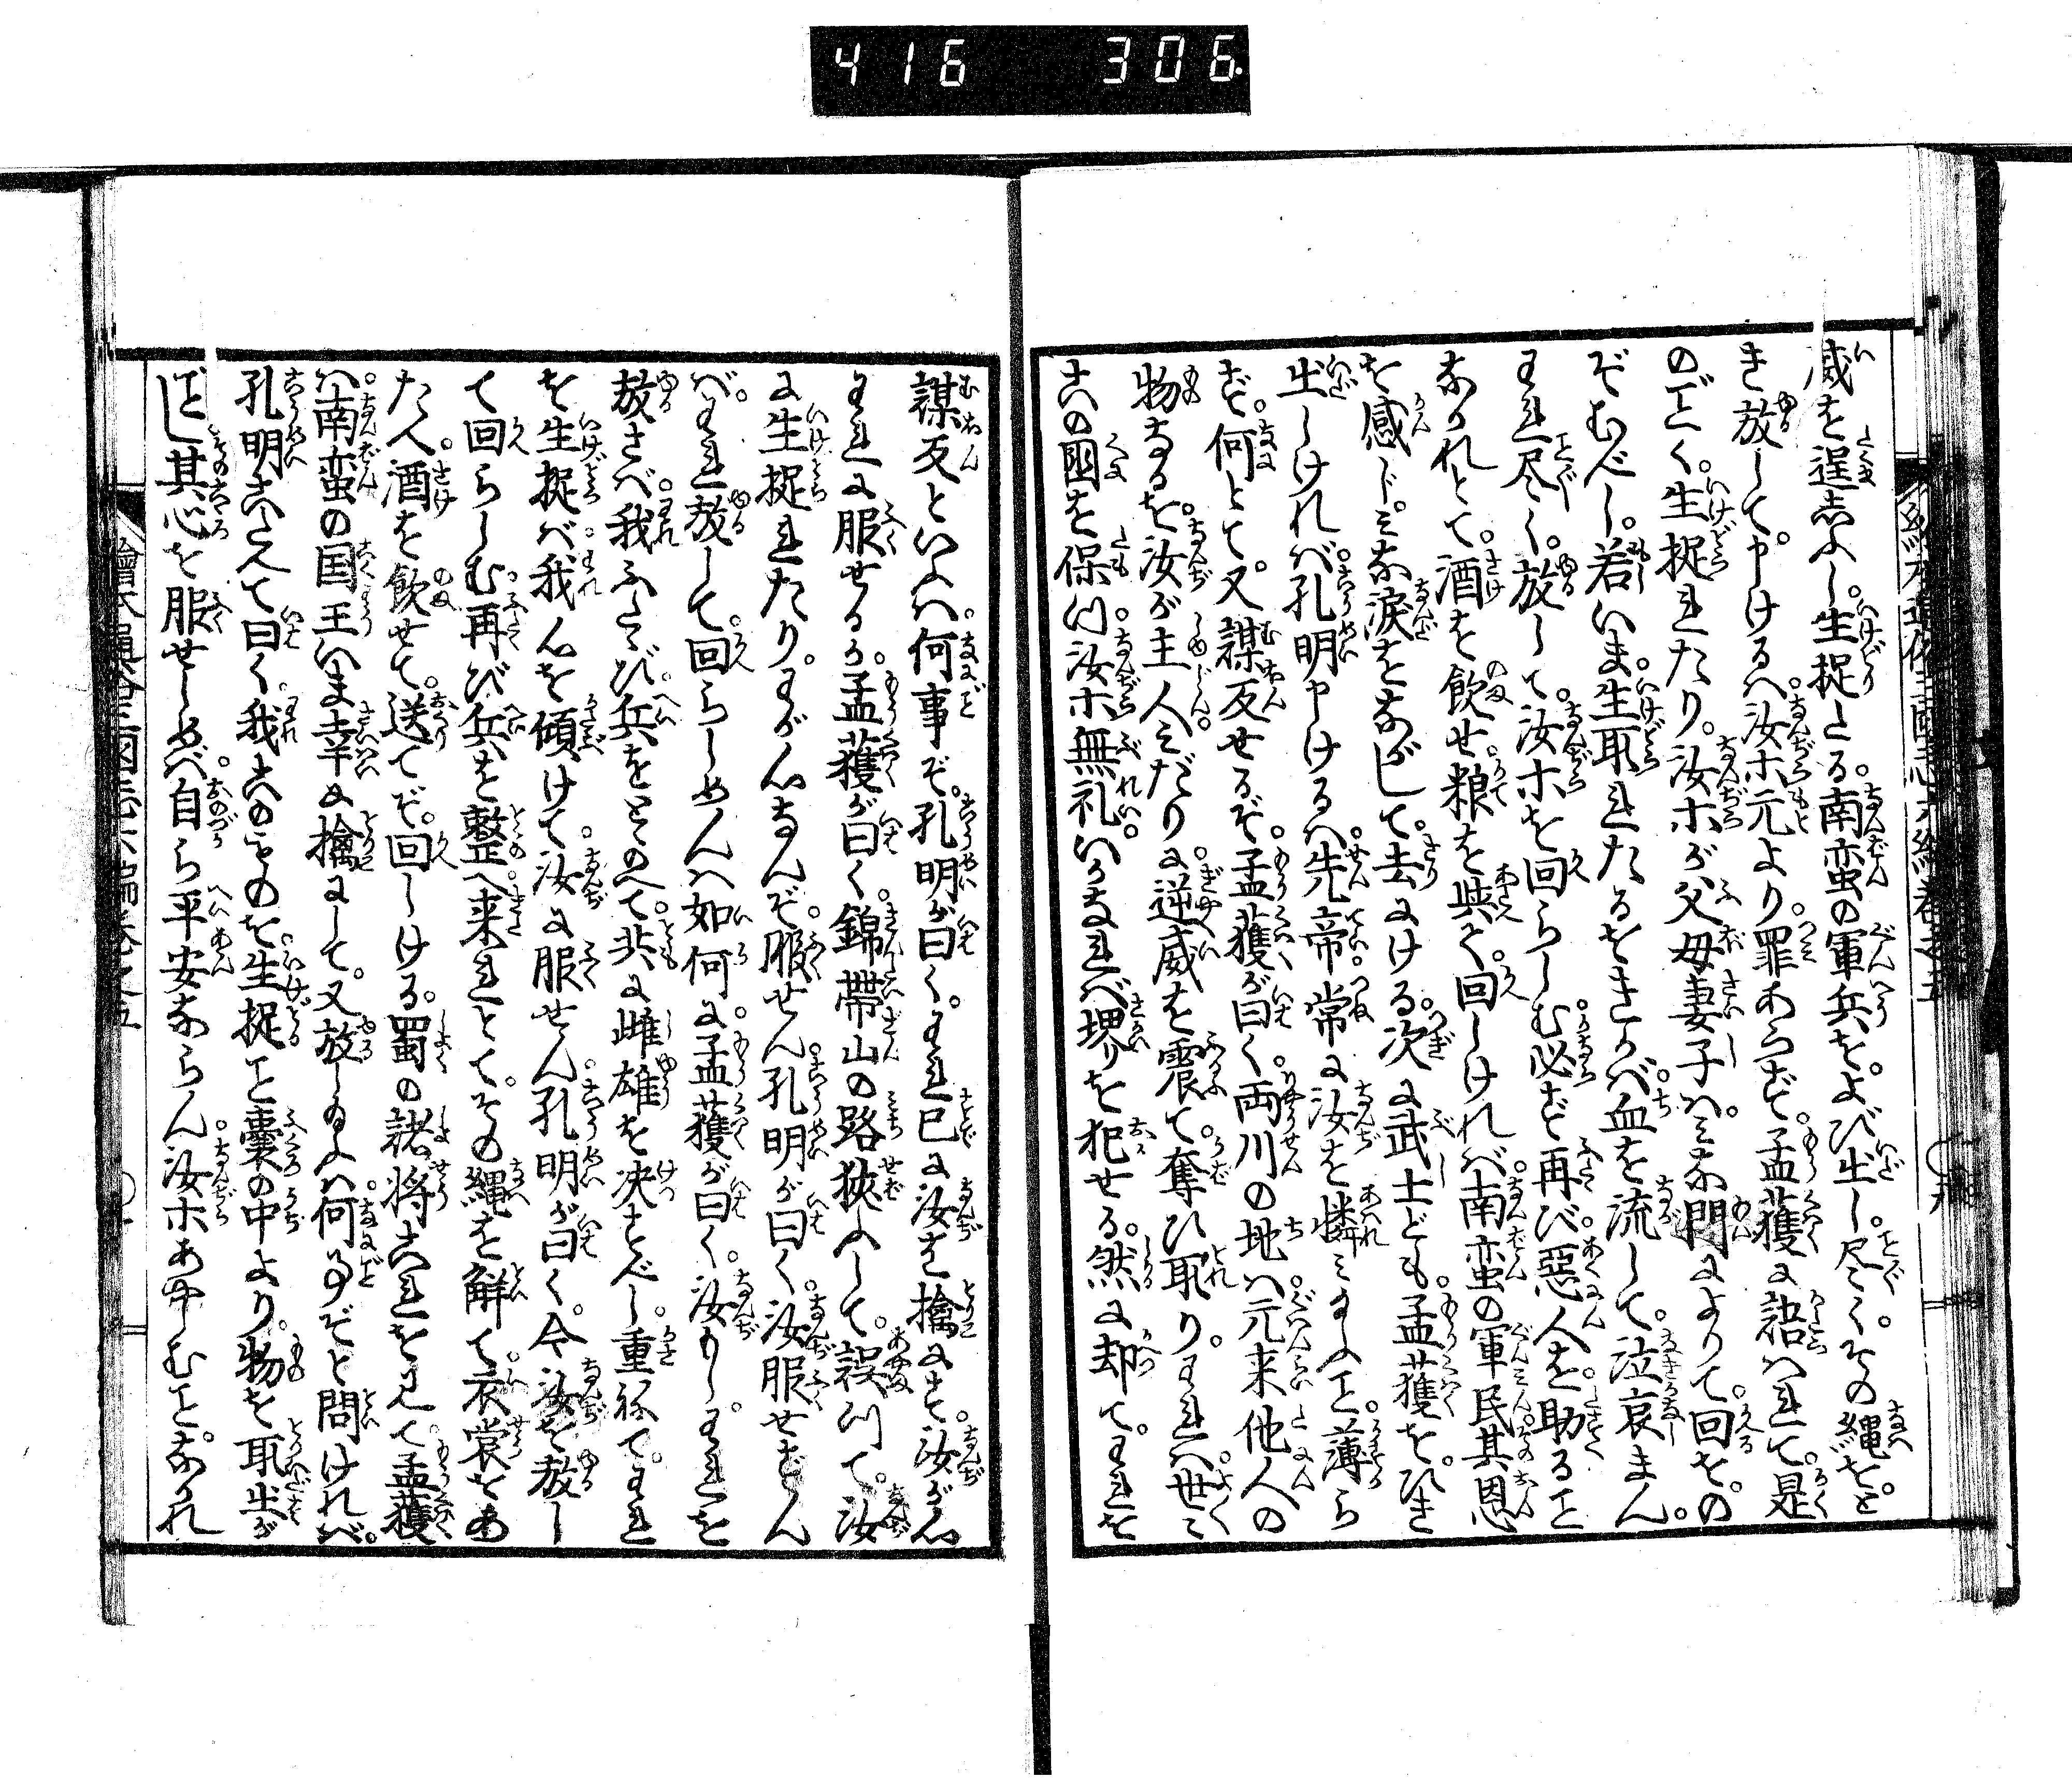 416 306
威を逞志ふし。生捉たる。南蛮の軍兵を。よび出し。尽く。その縄を。と
き放して。申けるハ。汝ホ元より。罪あらず。孟獲に語ハれて。是
のごとく。生捉れたり。汝ホが父母妻子ハ。ミな門によりて。回を。の
ぞむべし。若いま。生取れたるをきかバ。血を流して。泣哀まん。
われ尽く。放して。汝ホを回らしむ。必ず再び。悪人を。助ること
なかれとて。酒を飲せ。粮を與へ。回しけれバ。南蛮の軍民其恩
を感じ。ミな涙をながして。去にける。次に武士ども。孟獲を。引き
出しけれバ。孔明申けるハ。先帝。常に汝を憐ミ玉ふこと。薄ら
ず。何とて。又謀反せるぞ。孟獲が曰く。両川の地ハ。元来他人の
物なるを。汝が主人ミだりに。逆威を震て。奪ひ取り。われハ。世々
この国を保つ。汝ホ無礼。いかなれバ。堺りを犯せる。然に却て。われを
謀反といふハ。何事ぞ。孔明が曰く。われ已に汝を擒にす。汝が心
われに服せるか。孟獲が曰く。錦帯山の路狭ふして。誤つて。汝
に生捉れたり。わが心なんぞ。服せん。孔明が曰く。汝服せずん
バ。われ放して。回らしめんハ如何に。孟獲が曰く。汝もし。われを
放さバ。我ふたゝび。兵をとゝのへて。共に雌雄を决すべし。重祢て。われ
を生捉バ。我心を傾けて。汝に服せん。孔明が曰く。今汝を放し
て回らしむ。再び兵を整へ来れとて。その縄を解て。衣裳をあ
たへ。酒を飲せて。送てぞ。回しける。蜀の諸将これを見て。孟獲
ハ。南蛮の国王。いま幸に擒にして。又放し玉ふハ。何事ぞと問けれバ。
孔明こたえて曰く。我このものを。生捉こと嚢の中より。物を取出が
ごとし。其心を服せしめバ。自ら平安ならん。汝ホあやしむことなかれ